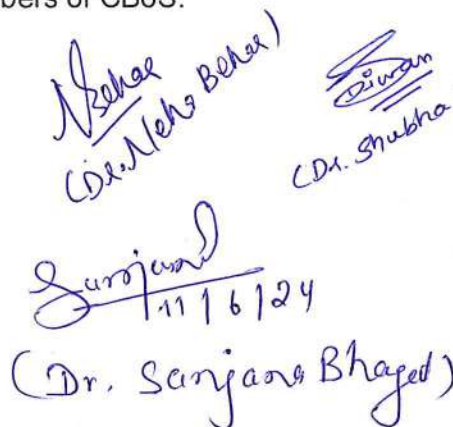 bers of CBoS.
NBehar
(Dr. Neha Behar)
Diwan
(Dr. Shubha
Sanjana
11/6/24
(Dr. Sanjana Bhaged)